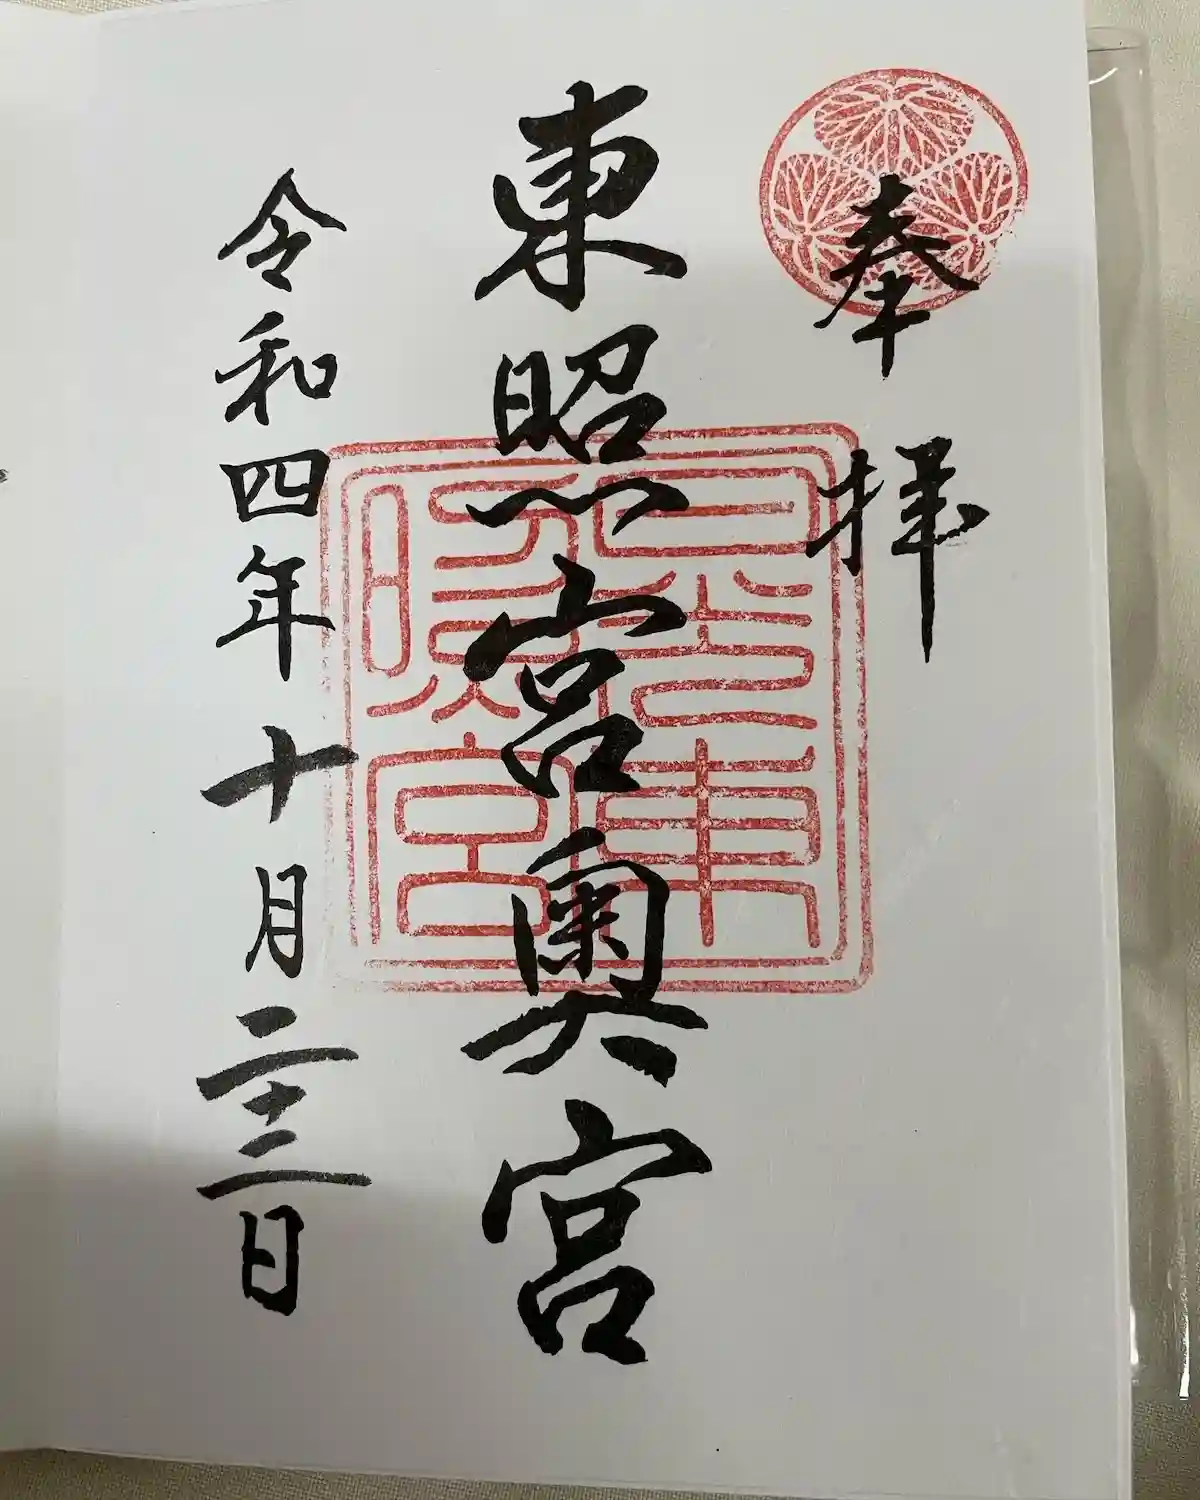 奉拝
東照宮奥宮
令和四年十月二十三日
日光東
照宮